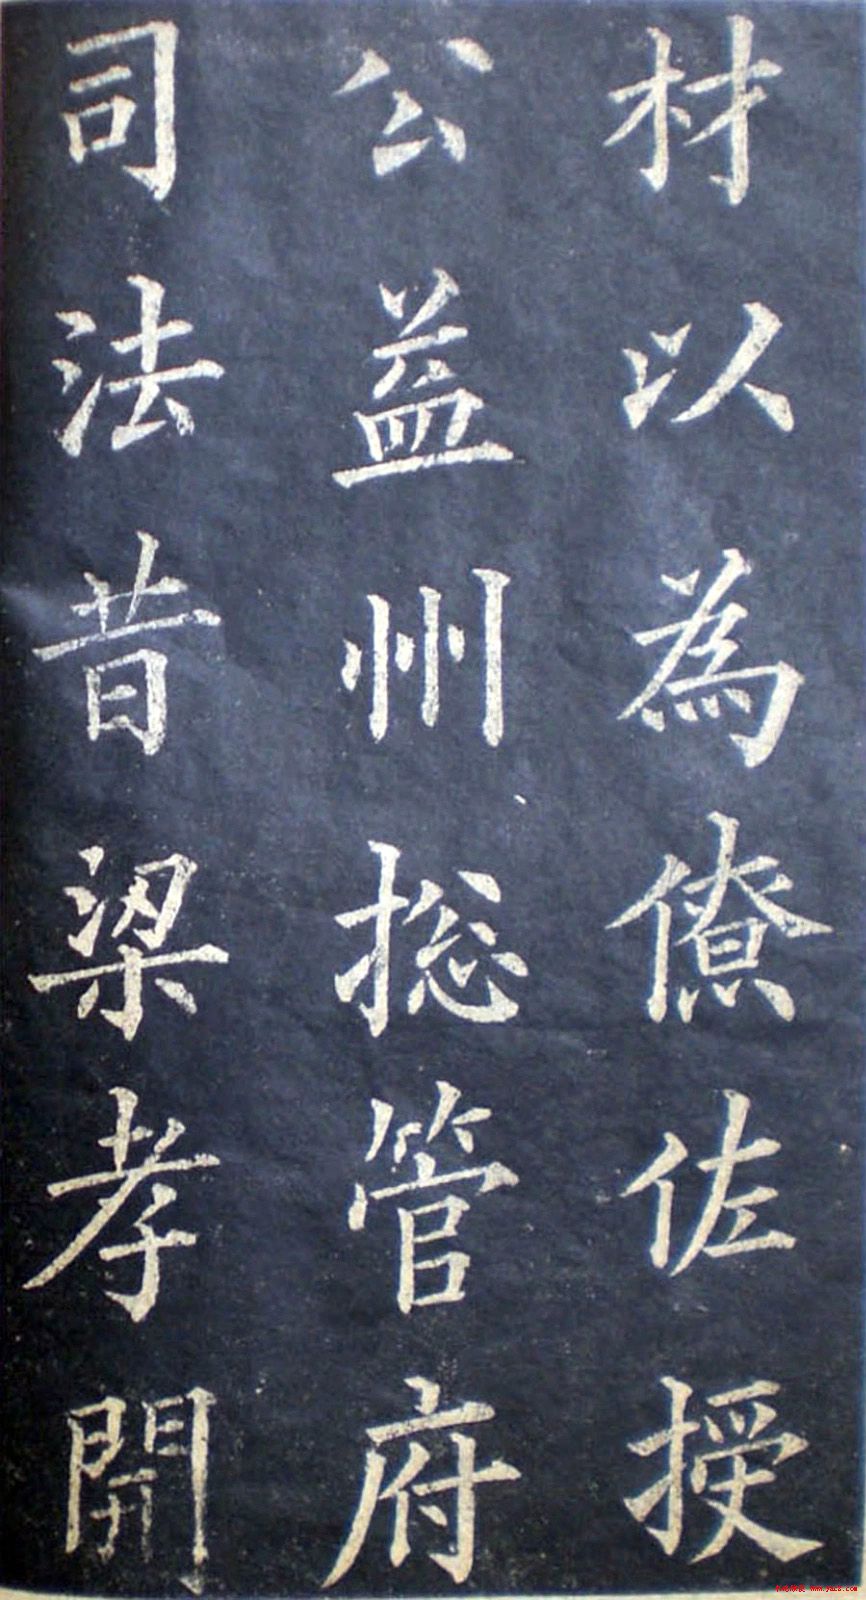 材以為僚佐授
公益州揔管府
司法昔梁孝開
www.yac8.com